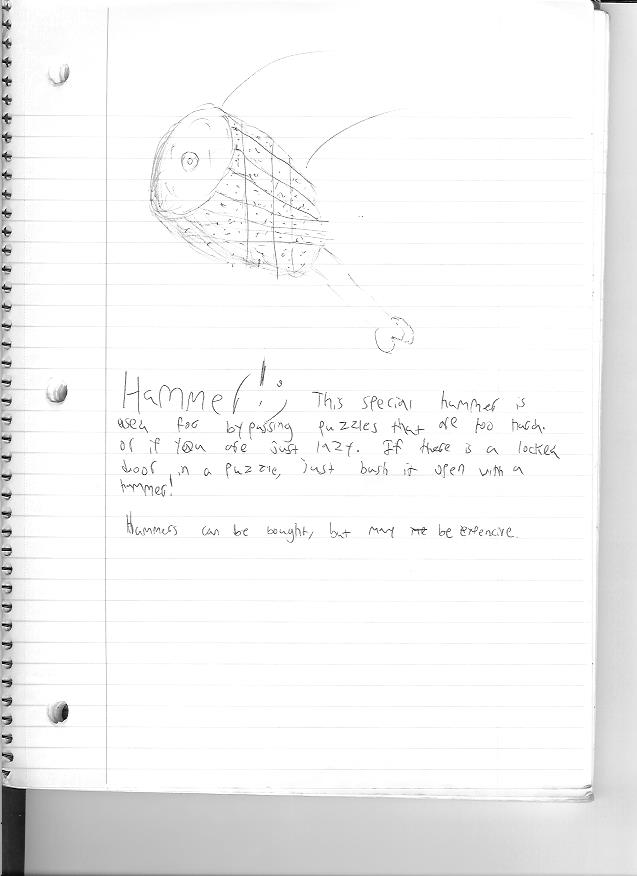 Hammer!; This special hammer is
used for bypassing puzzles that are too hard.
or if you are just lazy. If there is a locked
door in a puzzle, just bash it open with a
hammer!
Hammers can be bought, but may be expencive.